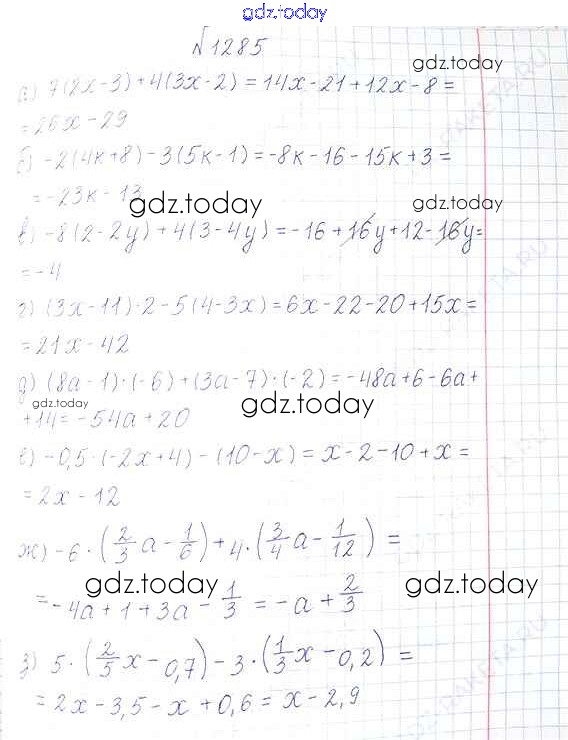 gdz.today
№1285
gdz.today
а) 7(2x-3)+4(3x-2)=14x-21+12x-8=
=26x-29
б) -2(4к+8)-3(5к-1)=-8к-16-15к+3=
=-23к-13
gdz.today gdz.today
в) -8(2-2y)+4(3-4y)=-16+16y+12-16y=
=-4
г) (3x-11)·2-5(4-3x)=6x-22-20+15x=
=21x-42
д) (8a-1)·(-6)+(3a-7)·(-2)=-48a+6-6a+
gdz.today gdz.today
+14=-54a+20
е) -0,5·(-2x+4)-(10-x)=x-2-10+x=
=2x-12
ж) -6·(2/3 a-1/6)+4·(3/4 a-1/12)=
gdz.today gdz.today
=-4a+1+3a-1/3=-a+2/3
з) 5·(2/5 x-0,7)-3·(1/3 x-0,2)=
=2x-3,5-x+0,6=x-2,9
gdz.today